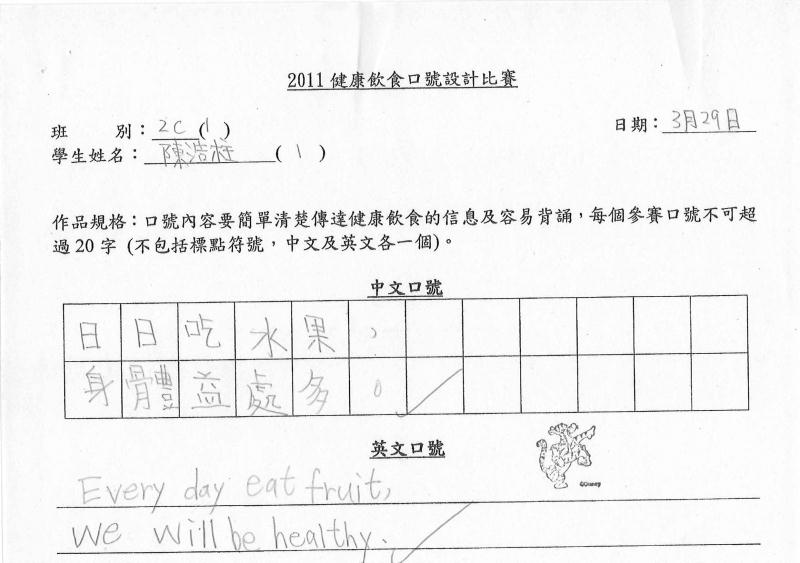 2011 健康飲食口號設計比賽
班 別：2C (1) 日期：3月29日
學生姓名：陳浩 (1)
作品規格：口號內容要簡單清楚傳達健康飲食的信息及容易背誦，每個參賽口號不可超
過 20 字 (不包括標點符號，中文及英文各一個)。
中文口號
日日吃水果，
身體益處多。
英文口號
©Disney
Every day eat fruit,
we will be healthy.